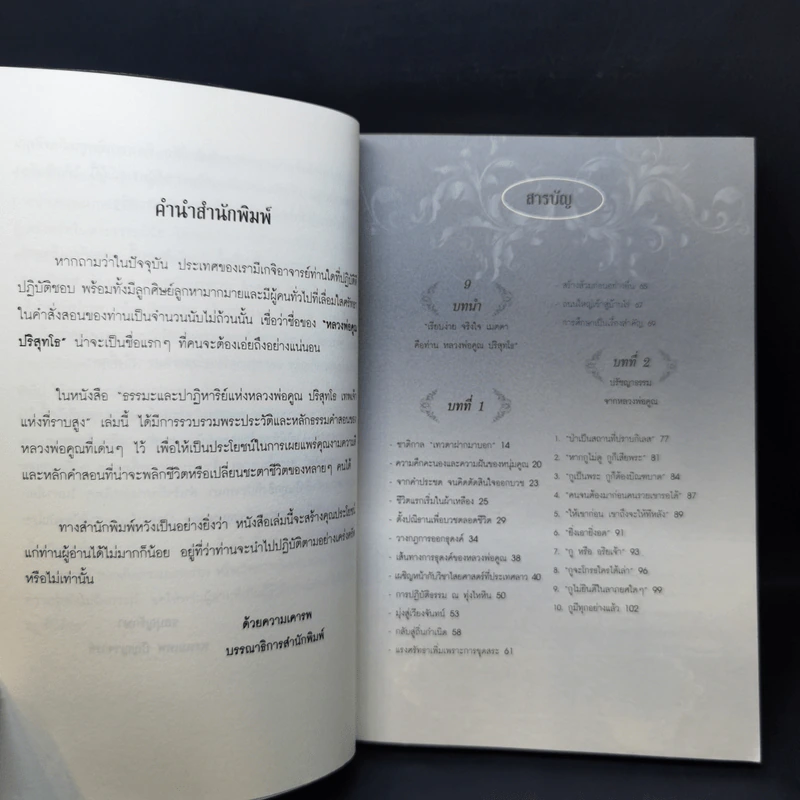 คำนำสำนักพิมพ์
หากถามว่าในปัจจุบัน ประเทศของเรามีเกจิอาจารย์ท่านใดที่ปฏิบัติดี
ปฏิบัติชอบ พร้อมทั้งมีลูกศิษย์ลูกหามากมายและมีผู้คนทั่วไปที่เลื่อมใสศรัทธา
ในคำสั่งสอนของท่านเป็นจำนวนนับไม่ถ้วนนั้น เชื่อว่าชื่อของ "หลวงพ่อคูณ
ปริสุทโธ" น่าจะเป็นชื่อแรกๆ ที่คนจะต้องเอ่ยถึงอย่างแน่นอน
ในหนังสือ "ธรรมะและปาฏิหาริย์แห่งหลวงพ่อคูณ ปริสุทโธ เทพเจ้า
แห่งที่ราบสูง" เล่มนี้ ได้มีการรวบรวมพระประวัติและหลักธรรมคำสอนของ
หลวงพ่อคูณที่เด่นๆ ไว้ เพื่อให้เป็นประโยชน์ในการเผยแพร่คุณงามความดี
และหลักคำสอนที่น่าจะพลิกชีวิตหรือเปลี่ยนชะตาชีวิตของหลายๆ คนได้
ทางสำนักพิมพ์หวังเป็นอย่างยิ่งว่า หนังสือเล่มนี้จะสร้างคุณประโยชน์
แก่ท่านผู้อ่านได้ไม่มากก็น้อย อยู่ที่ว่าท่านจะนำไปปฏิบัติตามอย่างเคร่งครัด
หรือไม่เท่านั้น
ด้วยความเคารพ
บรรณาธิการสำนักพิมพ์
สารบัญ
9
บทนำ
"เรียบง่าย จริงใจ เมตตา
คือท่าน หลวงพ่อคูณ ปริสุทโธ"
บทที่ 1
- ชาติกาล "เทวดาฝากมาบอก" 14
- ความคึกคะนองและความฝันของหนุ่มคูณ 20
- จากคำประชด จนคิดตัดสินใจออกบวช 23
- ชีวิตแรกเริ่มในผ้าเหลือง 25
- ตั้งปณิธานเพื่อบวชตลอดชีวิต 29
- วางกฎการออกธุดงค์ 34
- เส้นทางการธุดงค์ของหลวงพ่อคูณ 38
- เผชิญหน้ากับวิชาไสยศาสตร์ที่ประเทศลาว 40
- การปฏิบัติธรรม ณ ทุ่งไหหิน 50
- มุ่งสู่เวียงจันทน์ 53
- กลับสู่ถิ่นกำเนิด 58
- แรงศรัทธาเพิ่มเพราะการขุดสระ 61
การศึกษาเป็นเรื่องสำคัญ 69
บทที่ 2
ปรัชญาธรรม
จากหลวงพ่อคูณ
1. "นำเป็นสถานที่ปราบกิเลส" 77
2. "หากกูไม่ดู กูก็เสียพระ" 81
3. "กูเป็นพระ กูก็ต้องบิณฑบาต" 84
4. "คนจนต้องมาก่อนคนรวยเขารอได้" 87
5. "ให้เขาก่อน เขาถึงจะให้ทีหลัง" 89
6. "ยิ่งเอายิ่งอด" 91
7. "กู หรือ อริยเจ้า" 93
8. "กูจะโกรธใครได้เล่า" 96
9. "กูไม่ยินดีในลาภยศใดๆ" 99
10. กูมีทุกอย่างแล้ว 102